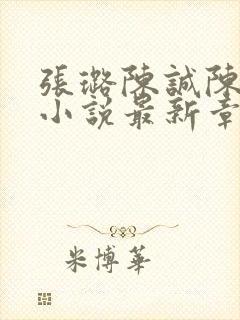 張璐陳誠陳
小說最新章
米博華